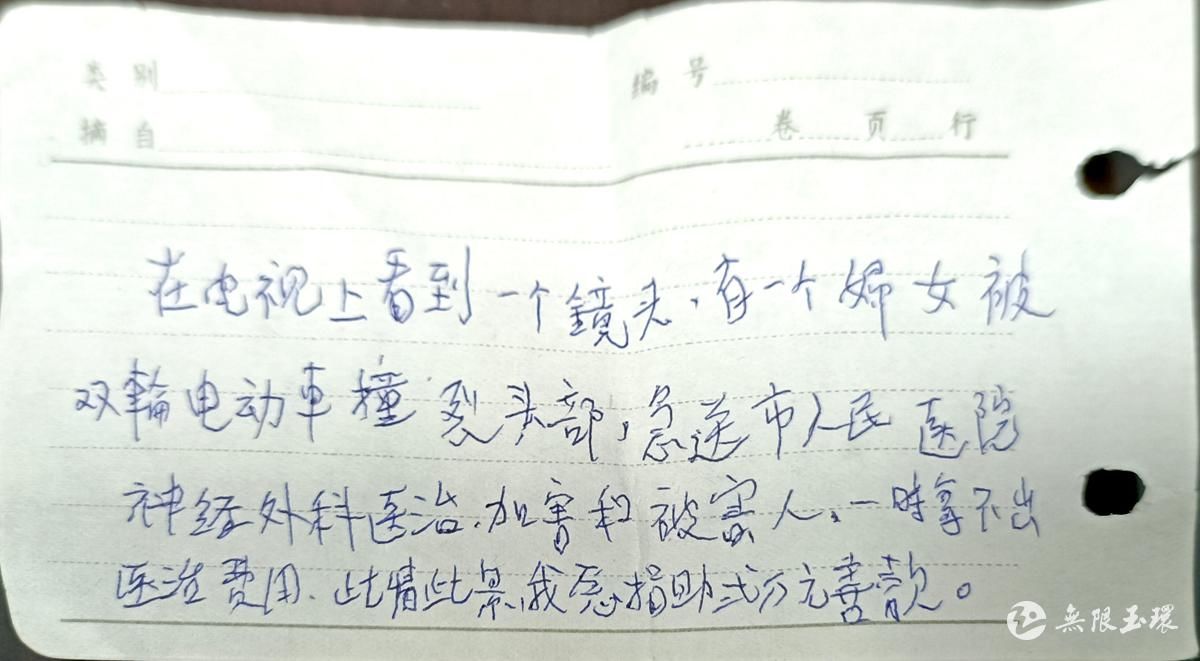 类别 编号
摘自 卷 页 行
在电视上看到一个鏡头，有一个婦女被
双輪电动車撞裂头部，急送市人民医院
神经外科医治，加害和被害人，一时拿不出
医治费用，此情此景，我愿捐助弍万元善款。
無限玉環